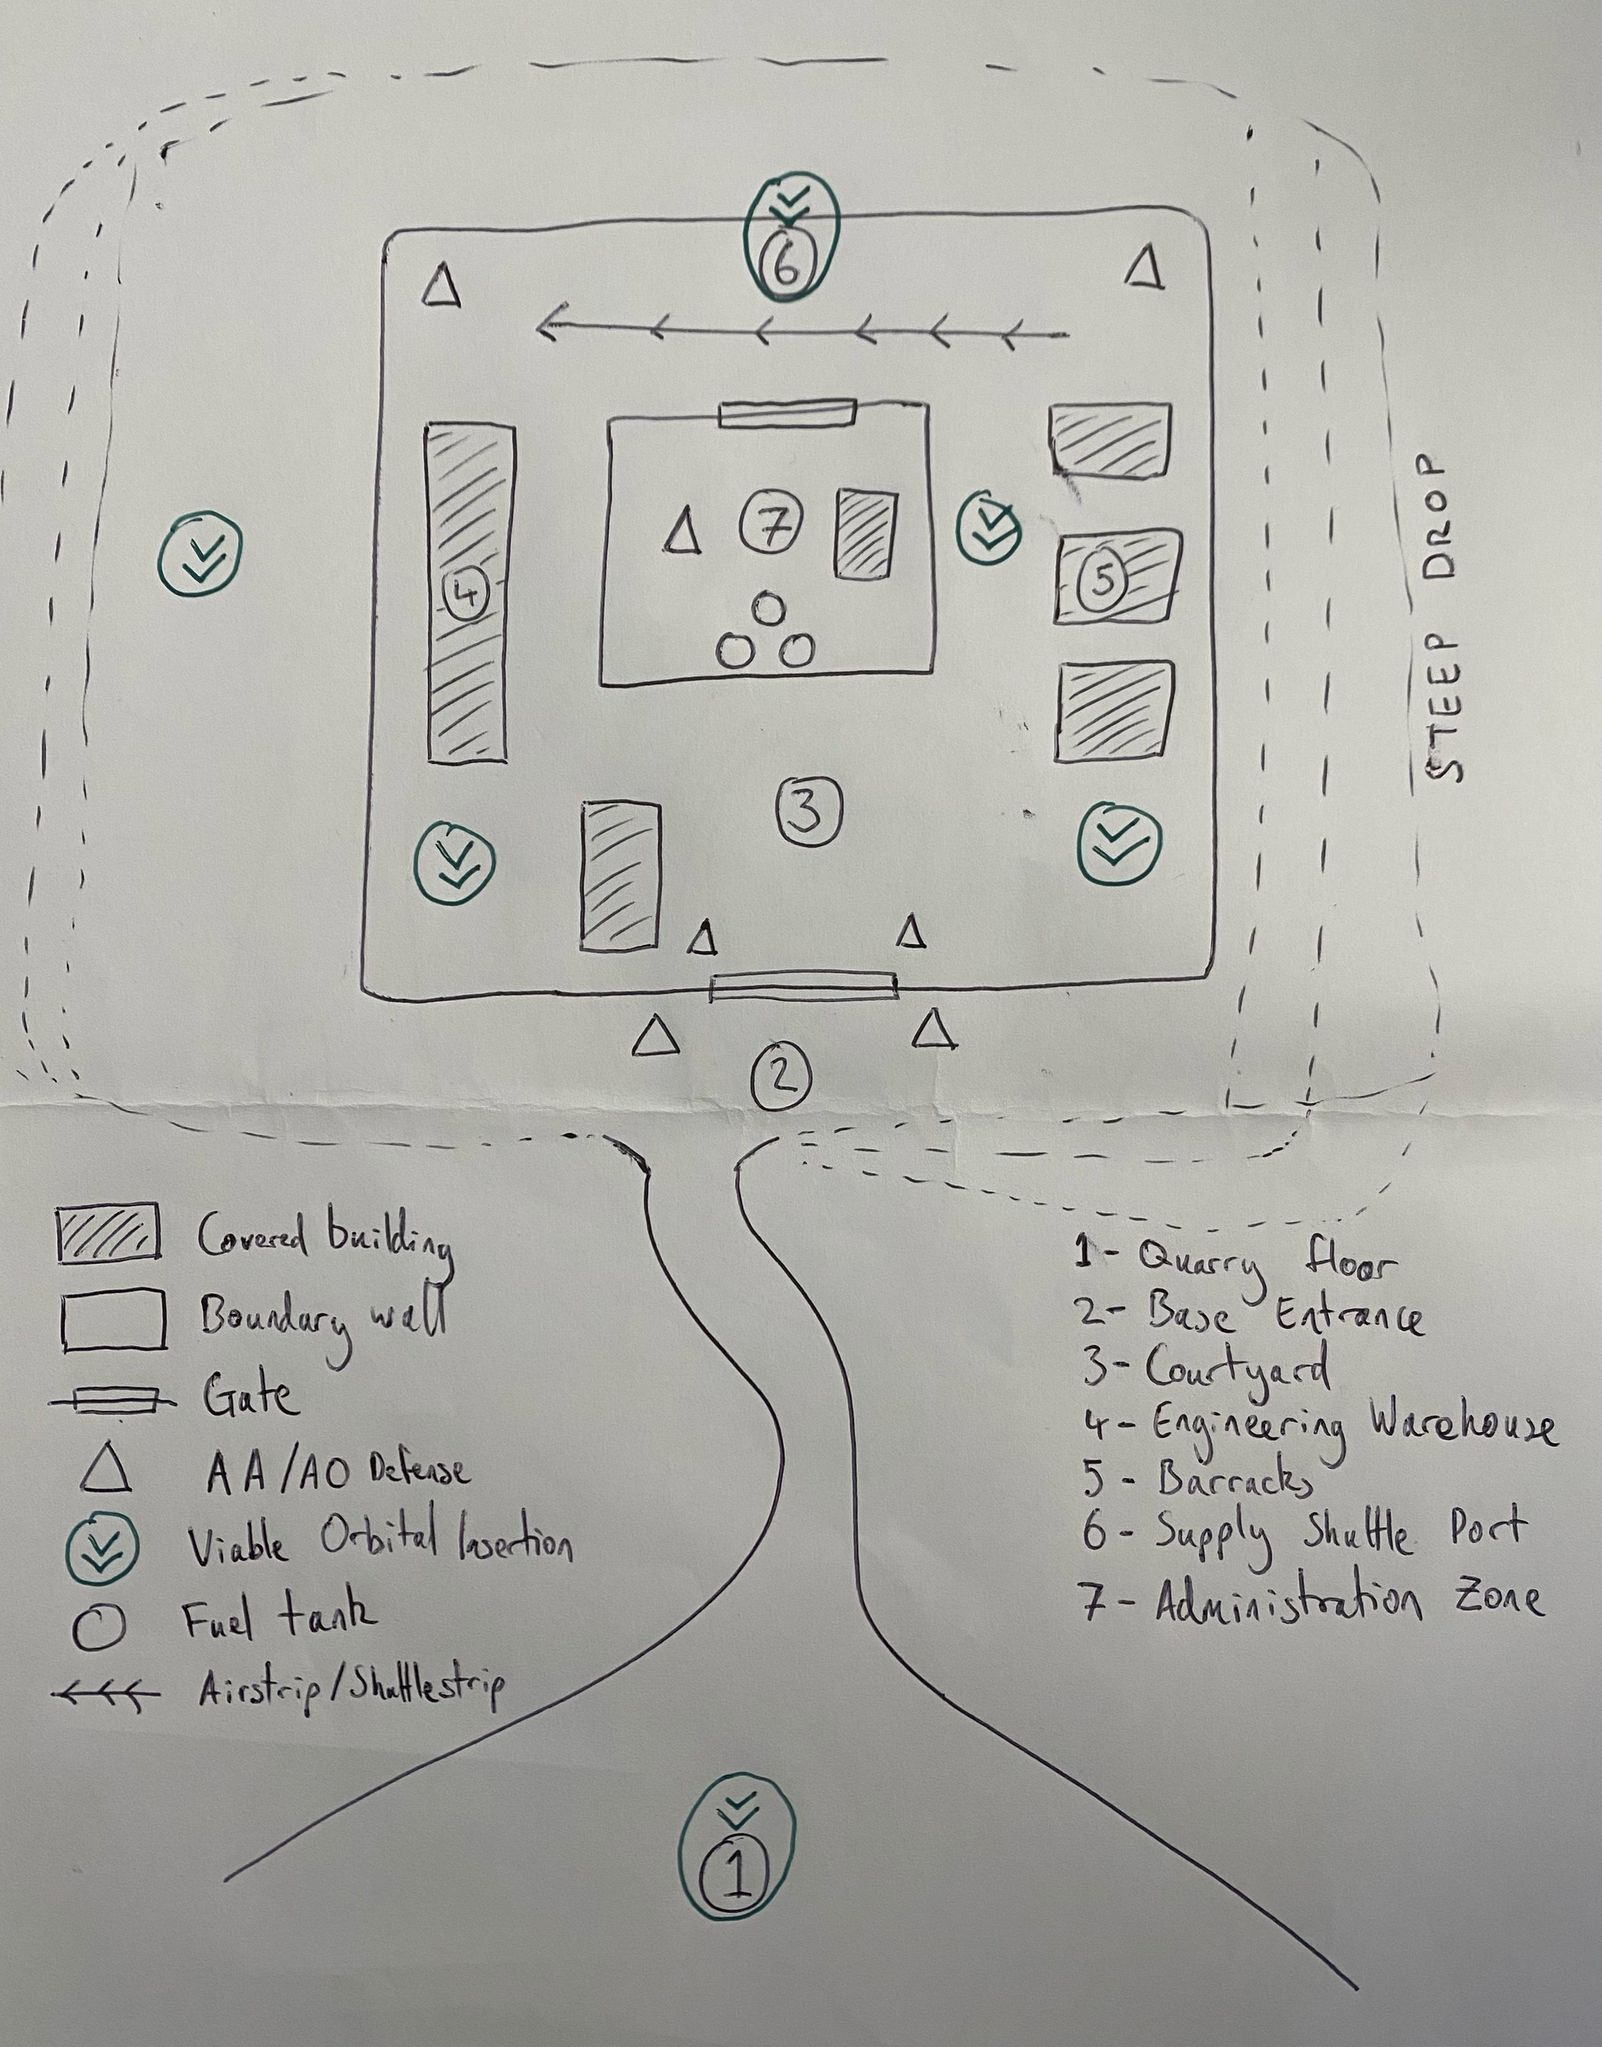 6
7
4
5
3
2
STEEP DROP
Covered building
Boundary wall
Gate
AA/AO Defense
Viable Orbital Insertion
Fuel tank
Airstrip/Shuttlestrip
1- Quarry floor
2- Base Entrance
3- Courtyard
4- Engineering Warehouse
5- Barracks
6- Supply Shuttle Port
7- Administration Zone
1